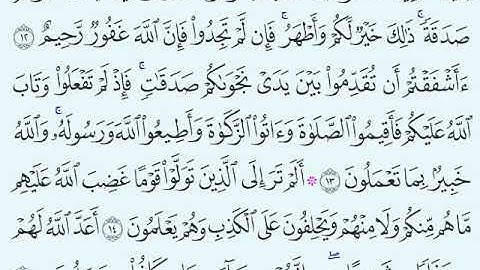 صَدَقَةً ۚ ذَٰلِكَ خَيْرٌ لَّكُمْ وَأَطْهَرُ ۚ فَإِن لَّمْ تَجِدُوا۟ فَإِنَّ ٱللَّهَ غَفُورٌ رَّحِيمٌ ١٢
ءَأَشْفَقْتُمْ أَن تُقَدِّمُوا۟ بَيْنَ يَدَىْ نَجْوَىٰكُمْ صَدَقَـٰتٍ ۚ فَإِذْ لَمْ تَفْعَلُوا۟ وَتَابَ
ٱللَّهُ عَلَيْكُمْ فَأَقِيمُوا۟ ٱلصَّلَوٰةَ وَءَاتُوا۟ ٱلزَّكَوٰةَ وَأَطِيعُوا۟ ٱللَّهَ وَرَسُولَهُۥ ۚ وَٱللَّهُ
خَبِيرٌۢ بِمَا تَعْمَلُونَ ١٣ * أَلَمْ تَرَ إِلَى ٱلَّذِينَ تَوَلَّوْا۟ قَوْمًا غَضِبَ ٱللَّهُ عَلَيْهِم
مَّا هُم مِّنكُمْ وَلَا مِنْهُمْ وَيَحْلِفُونَ عَلَى ٱلْكَذِبِ وَهُمْ يَعْلَمُونَ ١٤ أَعَدَّ ٱللَّهُ لَهُمْ